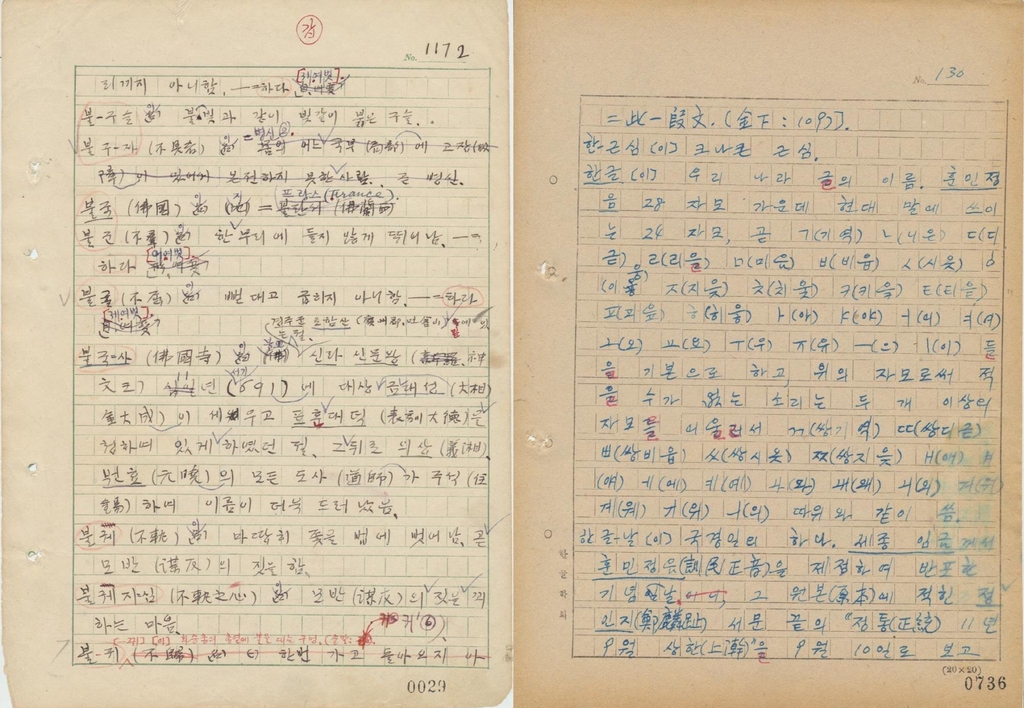 감
No. 1172
리끼지 아니함. ―하다
불-구슬 불빛과 같이 빛깔이 붉은 구슬.
불구-자 (不具者) = 병신②. 몸의 어느 국부(局部)에 고장(故
障)이 있어서 온전하지 못한 사람. 곧 병신.
불국 (佛國) = 프랑스(France). (佛蘭西)
불군 (不羣) 한 부리에 들지 않게 뛰어남. ―
하다
불굴 (不屈) 뻗대고 굽히지 아니함. ―하다
경주군 토함산
불국-사 (佛國寺) 신라 신문왕 (神
文王) 년 (서기 691)에 대상 김대성 (大相
金大成)이 세우고 표훈 대덕 (表訓大德)을
청하여 있게 하였던 절. 그 뒤로 의상 (義湘)
원효 (元曉)의 모든 도사 (道師)가 주석 (住
錫)하여 이름이 더욱 드러났음.
불궤 (不軌) 마땅히 좇을 법에 벗어남. 곧
모반 (謀反)의 짓을 함.
불궤지심 (不軌之心) 모반 (謀反)의 짓을 꾀
하는 마음.
불귀 (不歸) 한번 가고 돌아오지 아
0029
No. 130
= 此一段文. (金下:109).
한-근심 (이) 크나큰 근심.
한글 (이) 우리 나라 글의 이름. 훈민정
음 28 자모 가운데 현대 말에 쓰이
는 24 자모, 곧 ㄱ(기역) ㄴ(니은) ㄷ(디
귿) ㄹ(리을) ㅁ(미음) ㅂ(비읍) ㅅ(시옷) ㅇ
(이응) ㅈ(지읒) ㅊ(치읓) ㅋ(키읔) ㅌ(티읕)
ㅍ(피읖) ㅎ(히읗) ㅏ(아) ㅑ(야) ㅓ(어) ㅕ(여)
ㅗ(오) ㅛ(요) ㅜ(우) ㅠ(유) ㅡ(으) ㅣ(이) 들
을 기본으로 하고, 위의 자모로써 적
을 수가 없는 소리는 두 개 이상의
자모를 어울러서 ㄲ(쌍기역) ㄸ(쌍디귿)
ㅃ(쌍비읍) ㅆ(쌍시옷) ㅉ(쌍지읒) ㅐ(애) ㅒ
(얘) ㅔ(에) ㅖ(예) ㅘ(와) ㅙ(왜) ㅚ(외) ㅝ(워)
ㅞ(웨) ㅟ(위) ㅢ(의) 따위와 같이 씀.
한글날 (이) 국경일의 하나. 세종 임금께서
훈민정음(訓民正音)을 제정하여 반포한
기념날. 그 원본(原本)에 적힌 정
인지(鄭麟趾) 서문 끝의 "정통(正統) 11년
9월 상한(上澣)"을 9월 10일로 보고
한글학회
(20×20)
0736